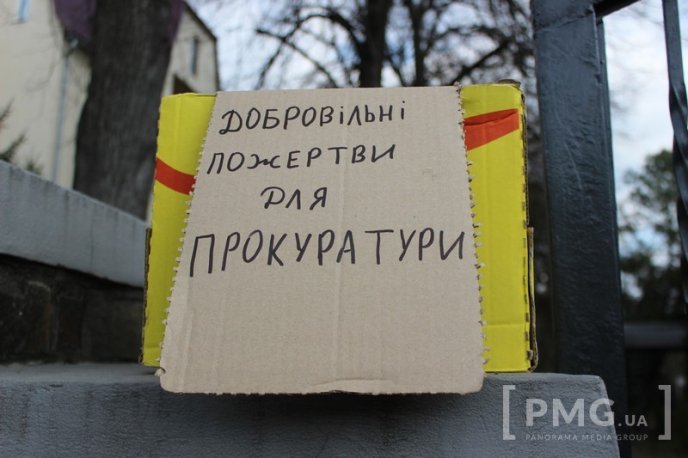 ДОБРОВІЛЬНІ
ПОЖЕРТВИ
ДЛЯ
ПРОКУРАТУРИ
[PMG.UA]
PANORAMA MEDIA GROUP